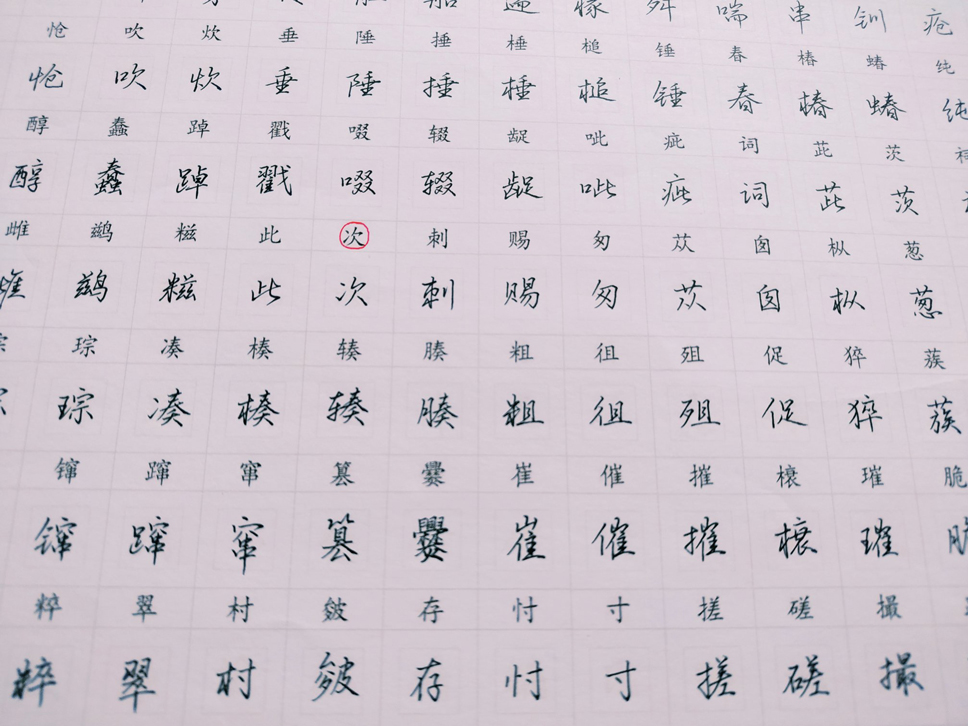 喘 串 钏 疮
怆 吹 炊 垂 陲 捶 棰 槌 锤 春 椿 蝽 纯
怆 吹 炊 垂 陲 捶 棰 槌 锤 春 椿 蝽 纯
醇 蠢 踔 戳 啜 辍 龊 呲 疵 词 茈 茨
醇 蠢 踔 戳 啜 辍 龊 呲 疵 词 茈 茨
雌 鹚 糍 此 次 刺 赐 匆 苁 囱 枞 葱
雌 鹚 糍 此 次 刺 赐 匆 苁 囱 枞 葱
琮 凑 楱 辏 腠 粗 徂 殂 促 猝 蔟
琮 凑 楱 辏 腠 粗 徂 殂 促 猝 蔟
镩 蹿 窜 篡 爨 崔 催 摧 榱 璀 脆
镩 蹿 窜 篡 爨 崔 催 摧 榱 璀
粹 翠 村 皴 存 忖 寸 搓 磋 撮
粹 翠 村 皴 存 忖 寸 搓 磋 撮